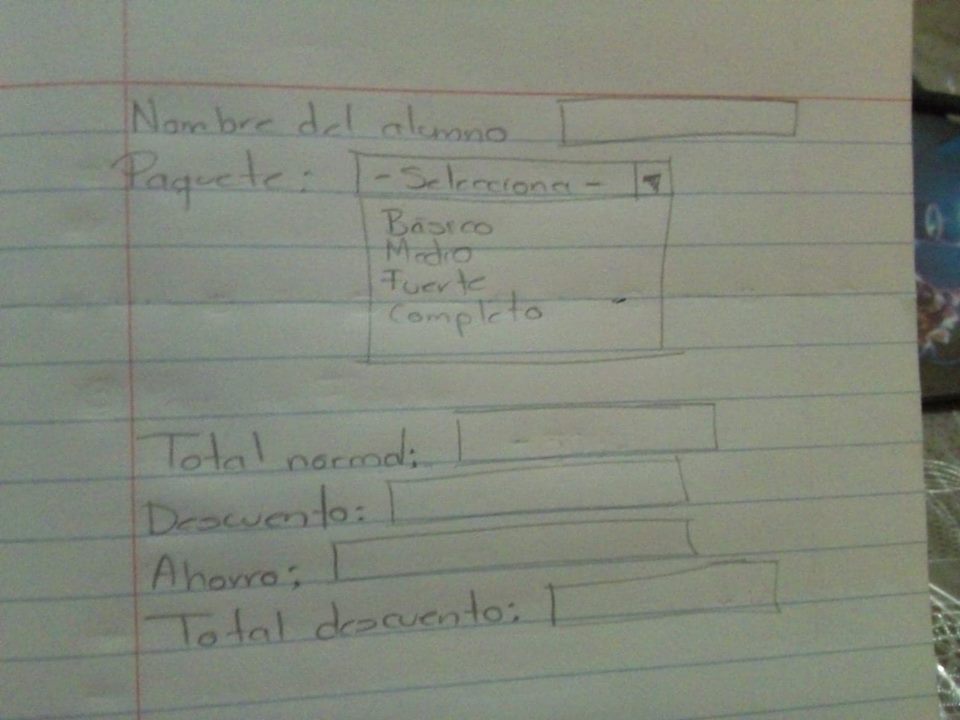 Nombre del alumno
Paquete: -Selecciona-
Básico
Medio
Fuerte
Completo
Total normal:
Descuento:
Ahorro:
Total descuento: